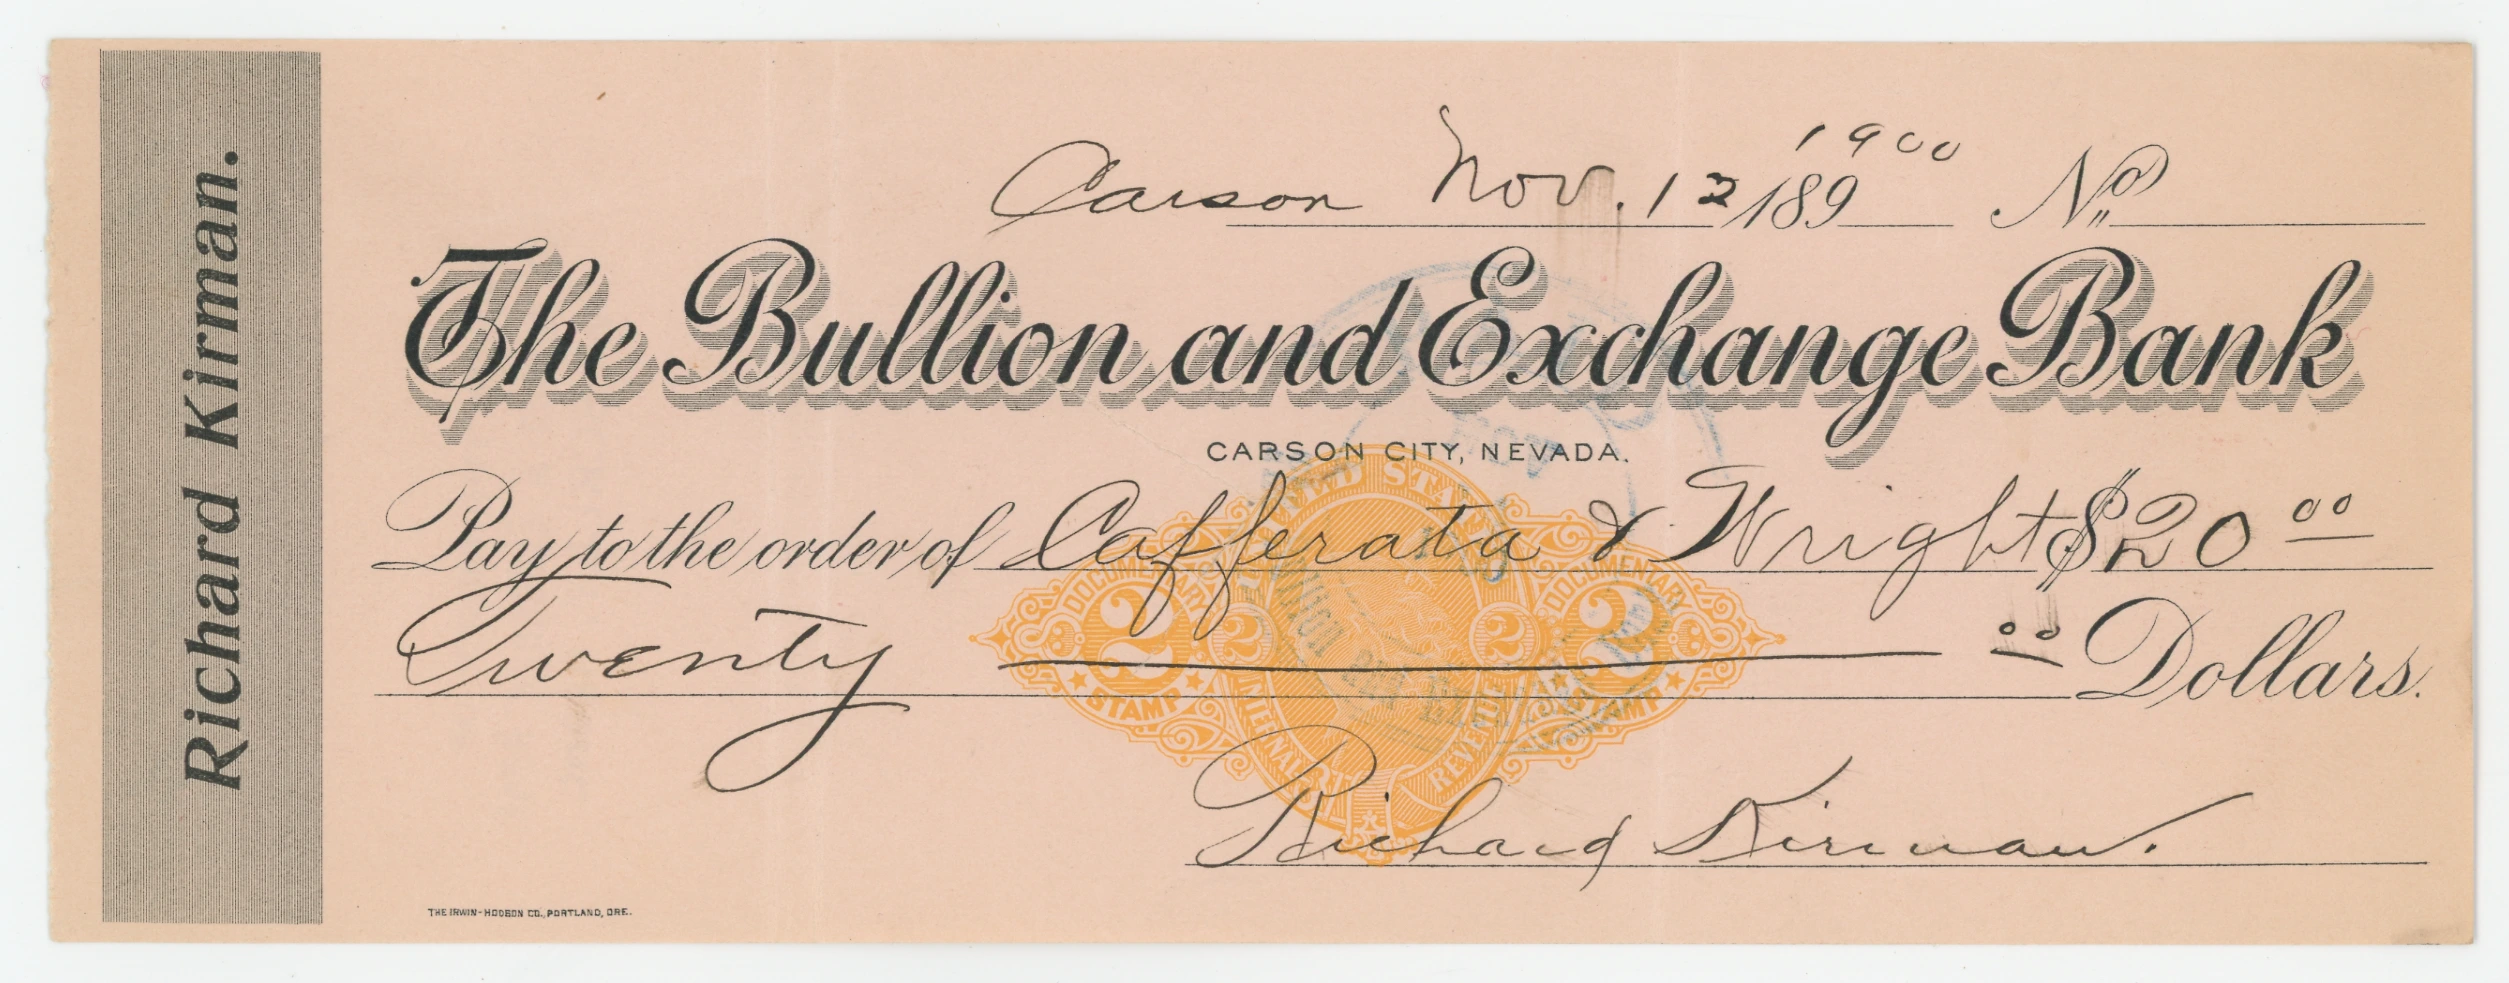 Richard Kirman.
Carson Nov. 12 189 1900 No
The Bullion and Exchange Bank
CARSON CITY, NEVADA.
Pay to the order of Cafferata & Wright $20 00
Twenty 00 Dollars.
UNITED STATES
DOCUMENTARY DOCUMENTARY
2 2 2 2
STAMP STAMP
INTERNAL REVENUE
NOV
Richard Kirman.
THE IRWIN-HODSON CO., PORTLAND, ORE.